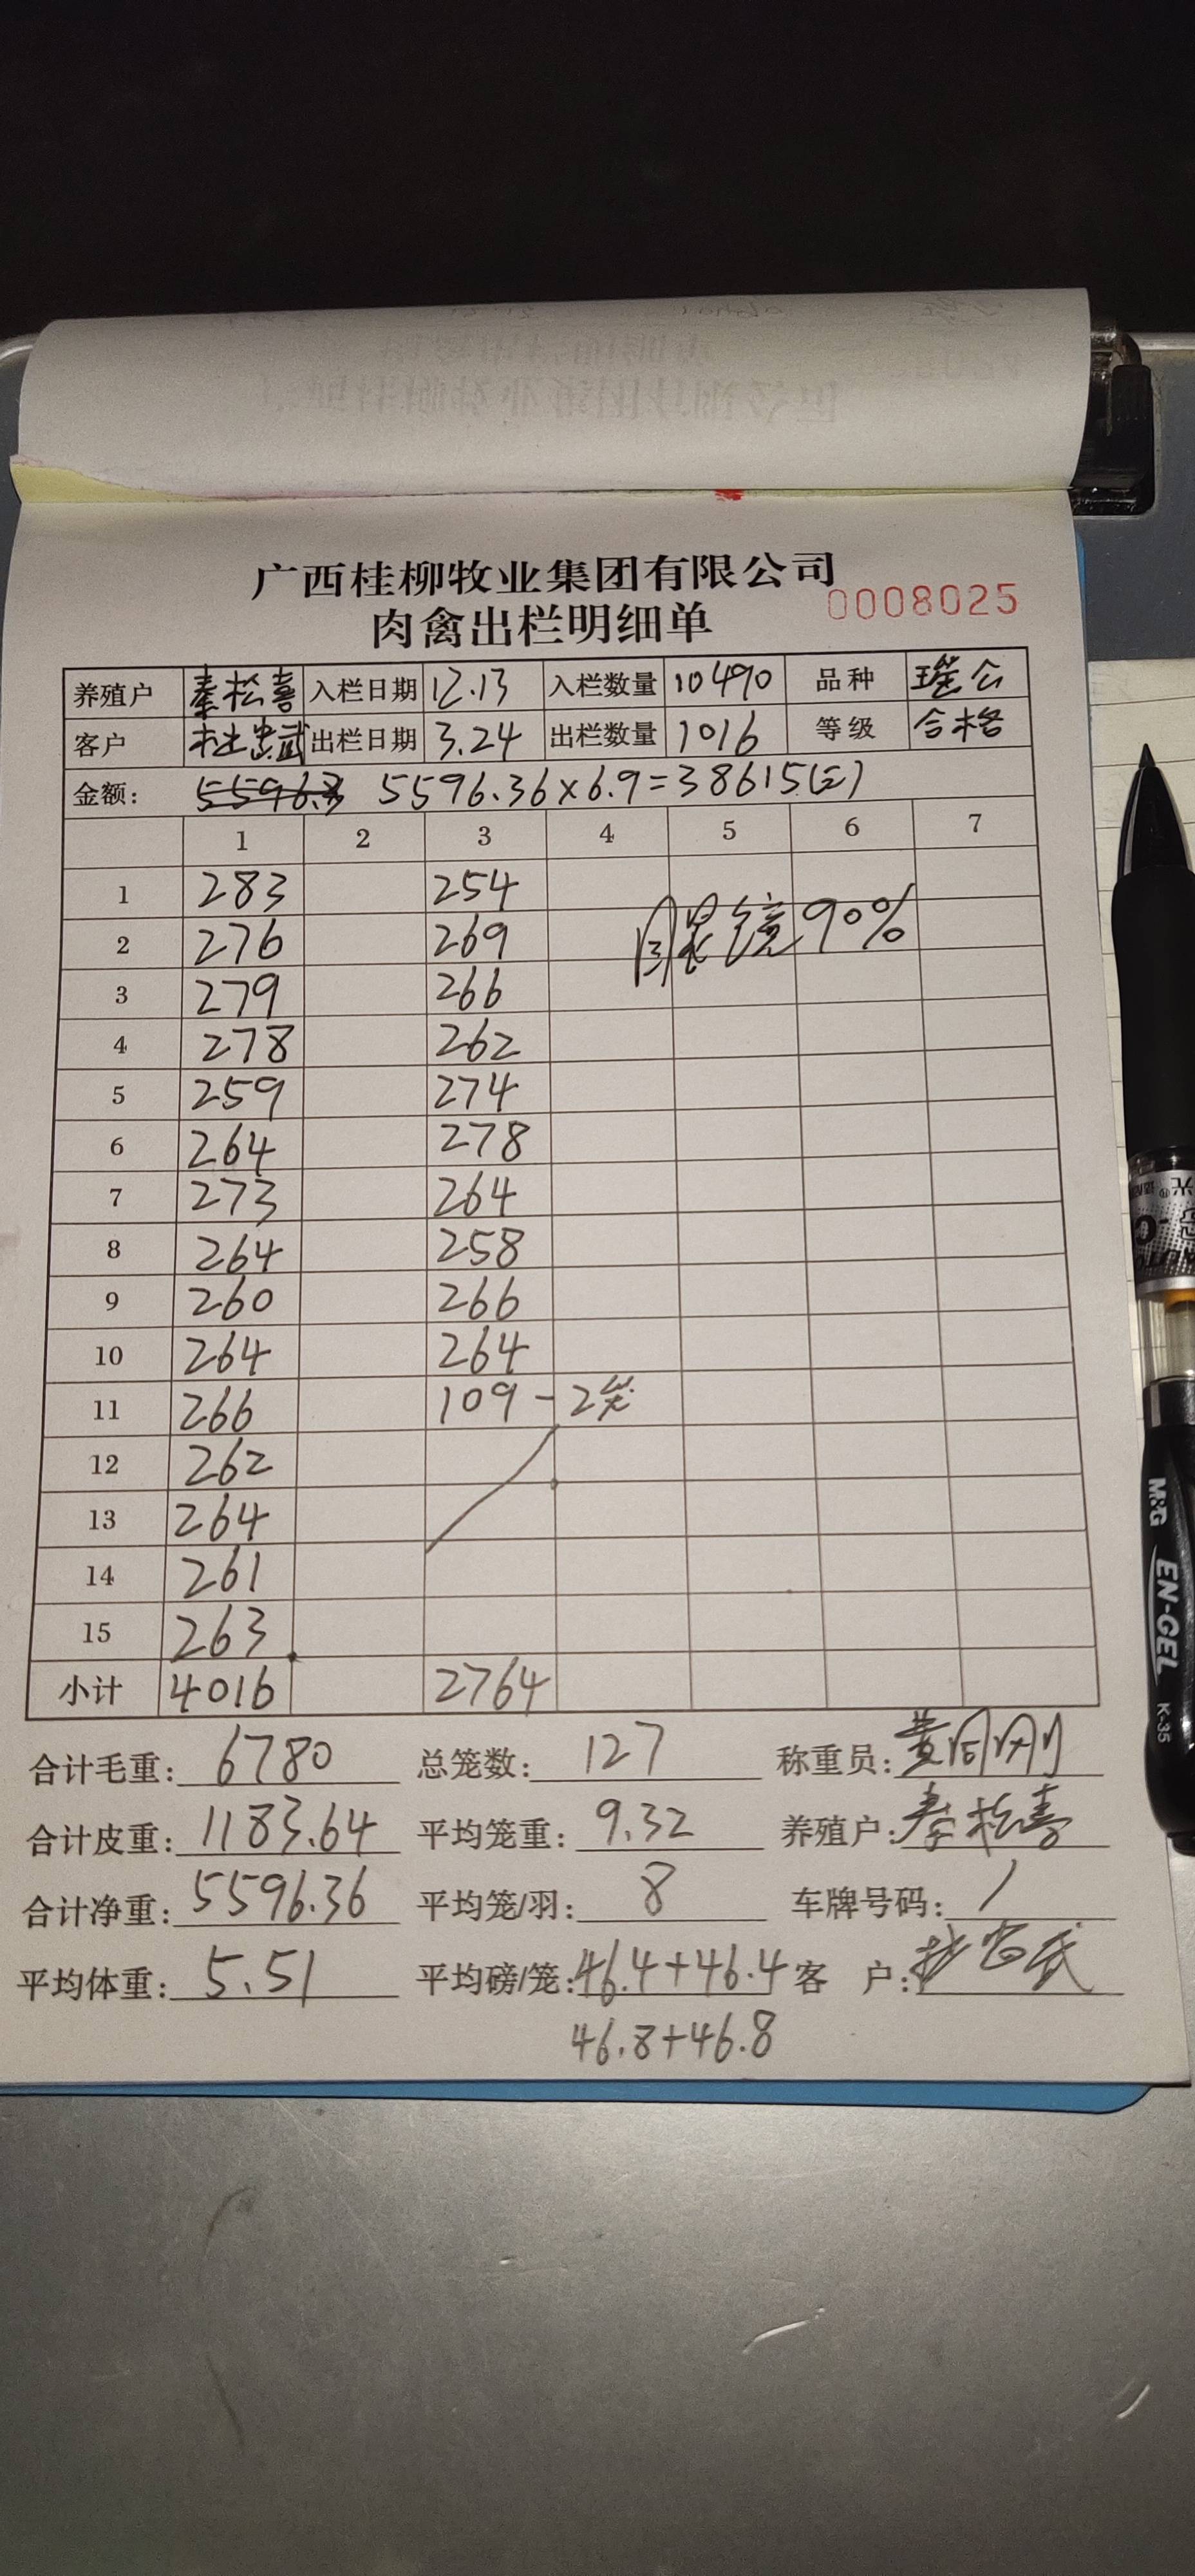 广西桂柳牧业集团有限公司
肉禽出栏明细单 0008025
养殖户 秦松喜 入栏日期 12.13 入栏数量 10490 品种 瑶公
客户 杜忠武 出栏日期 3.24 出栏数量 1016 等级 合格
金额: 5596.3 5596.36×6.9=38615(元)
1 2 3 4 5 6 7
1 283 254
2 276 269 眼镜90%
3 279 266
4 278 262
5 259 274
6 264 278
7 273 264
8 264 258
9 260 266
10 264 264
11 266 109-2笼
12 262
13 264
14 261
15 263
小计 4016 2764
合计毛重: 6780 总笼数: 127 称重员: 黄
合计皮重: 1183.64 平均笼重: 9.32 养殖户: 秦松喜
合计净重: 5596.36 平均笼/羽: 8 车牌号码: /
平均体重: 5.51 平均磅/笼: 46.4+46.4 客 户:
46.8+46.8
M&G EN-GEL K-35